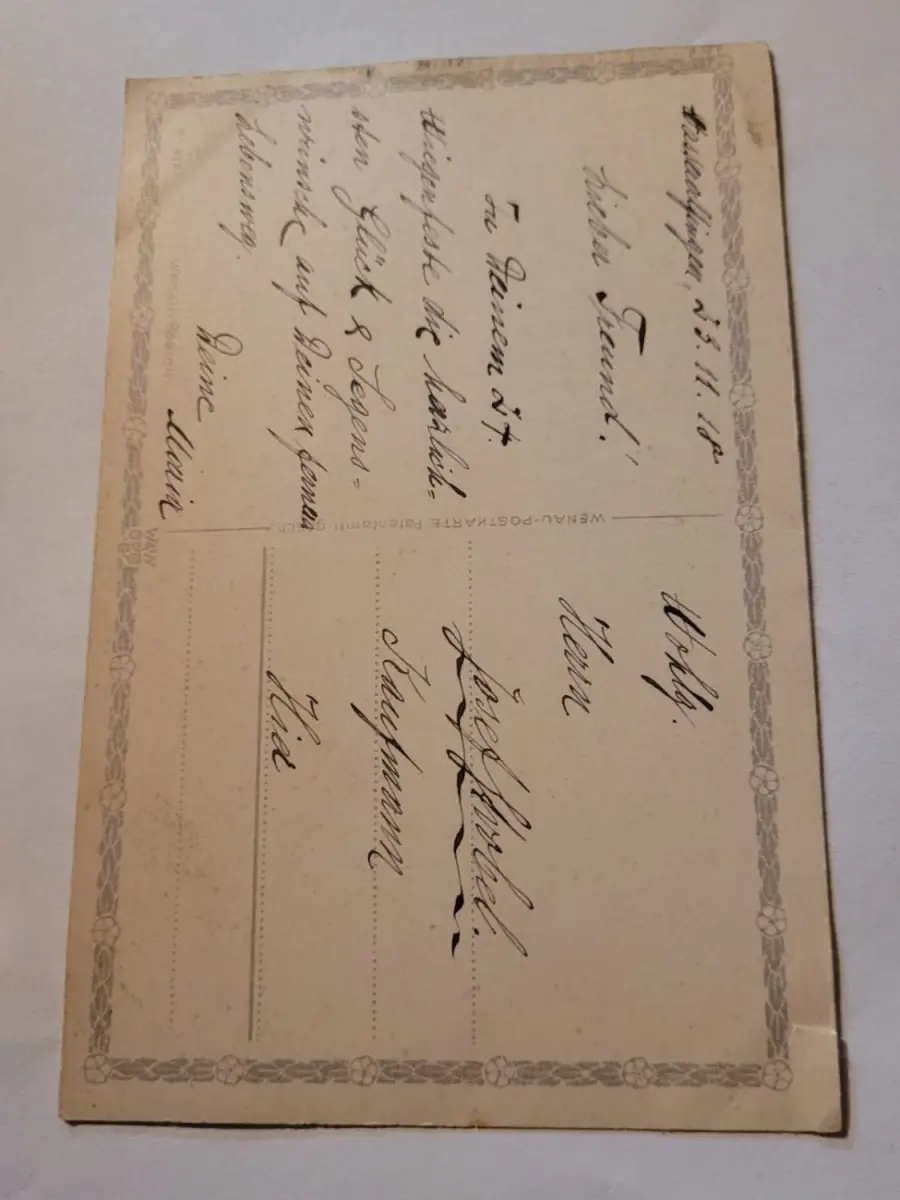 23.11.18
Lieber Freund!
Zu Deinem 27.
Wiegenfeste die herzlich=
sten Glück & Segens=
wünsche auf Deinen fernern
Lebensweg.
Deine
Maria
WENAU-POSTKARTE Patentamtl. gesch.
Wohlg.
Herrn
Josef
Kaufmann
Hier